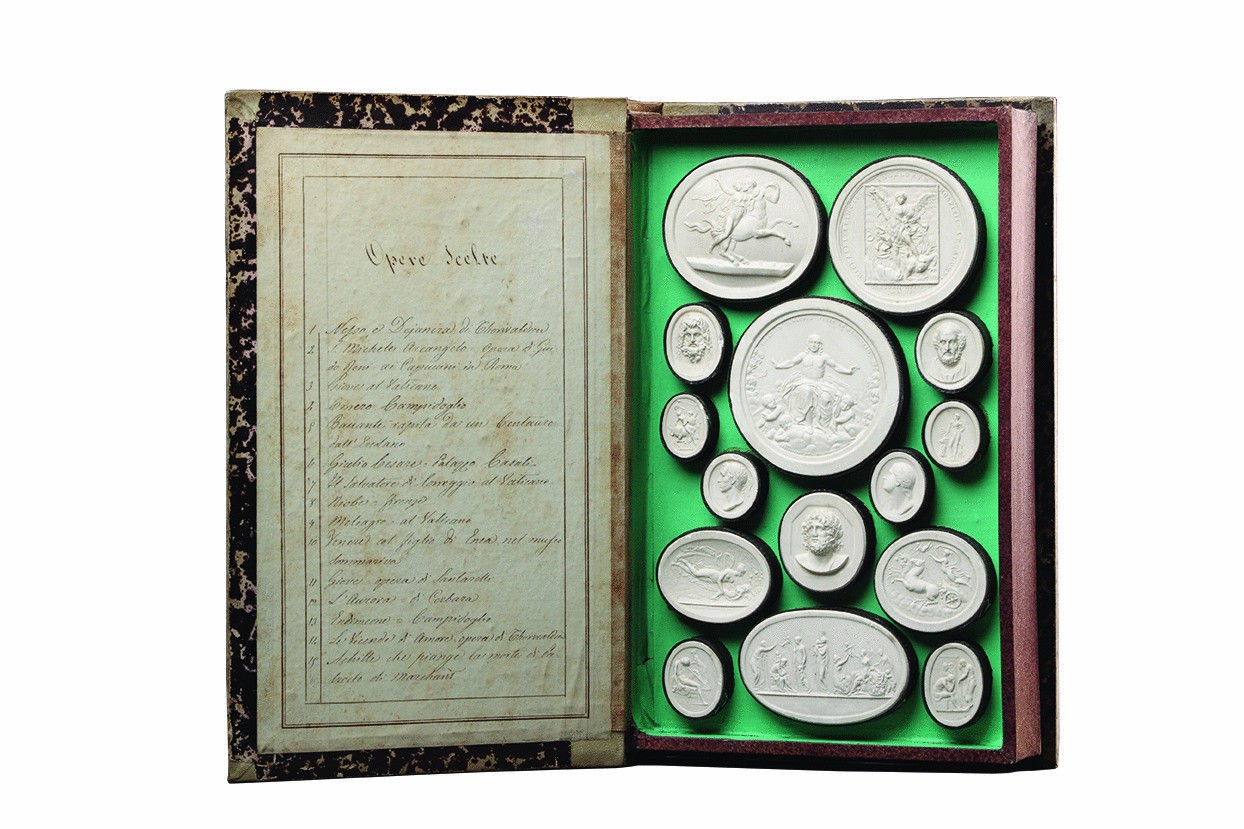 Opere Scelte
1 Nesso e Dejanira di Thorvaldsen
2 S. Michele Arcangelo opera di Gui-
do Reni ai Capucini in Roma
3 Giove al Vaticano
4 Omero Campidoglio
5 Baccante rapita da un Centauro
dall'
6 Giulio Cesare Palazzo Casali
7 Il Salvatore di Correggio al Vaticano
8 Niobe Firenze
9 Meleagro al Vaticano
10 Venere al figlio di nel museo
Sommariva
11 Giove opera di Santarelli
12 L'Aurora di
13 Endimione Campidoglio
14 Le Vicende d'Amore opera di Thorvaldsen
15 Achille che piange la morte di Pa
troclo di Marchant